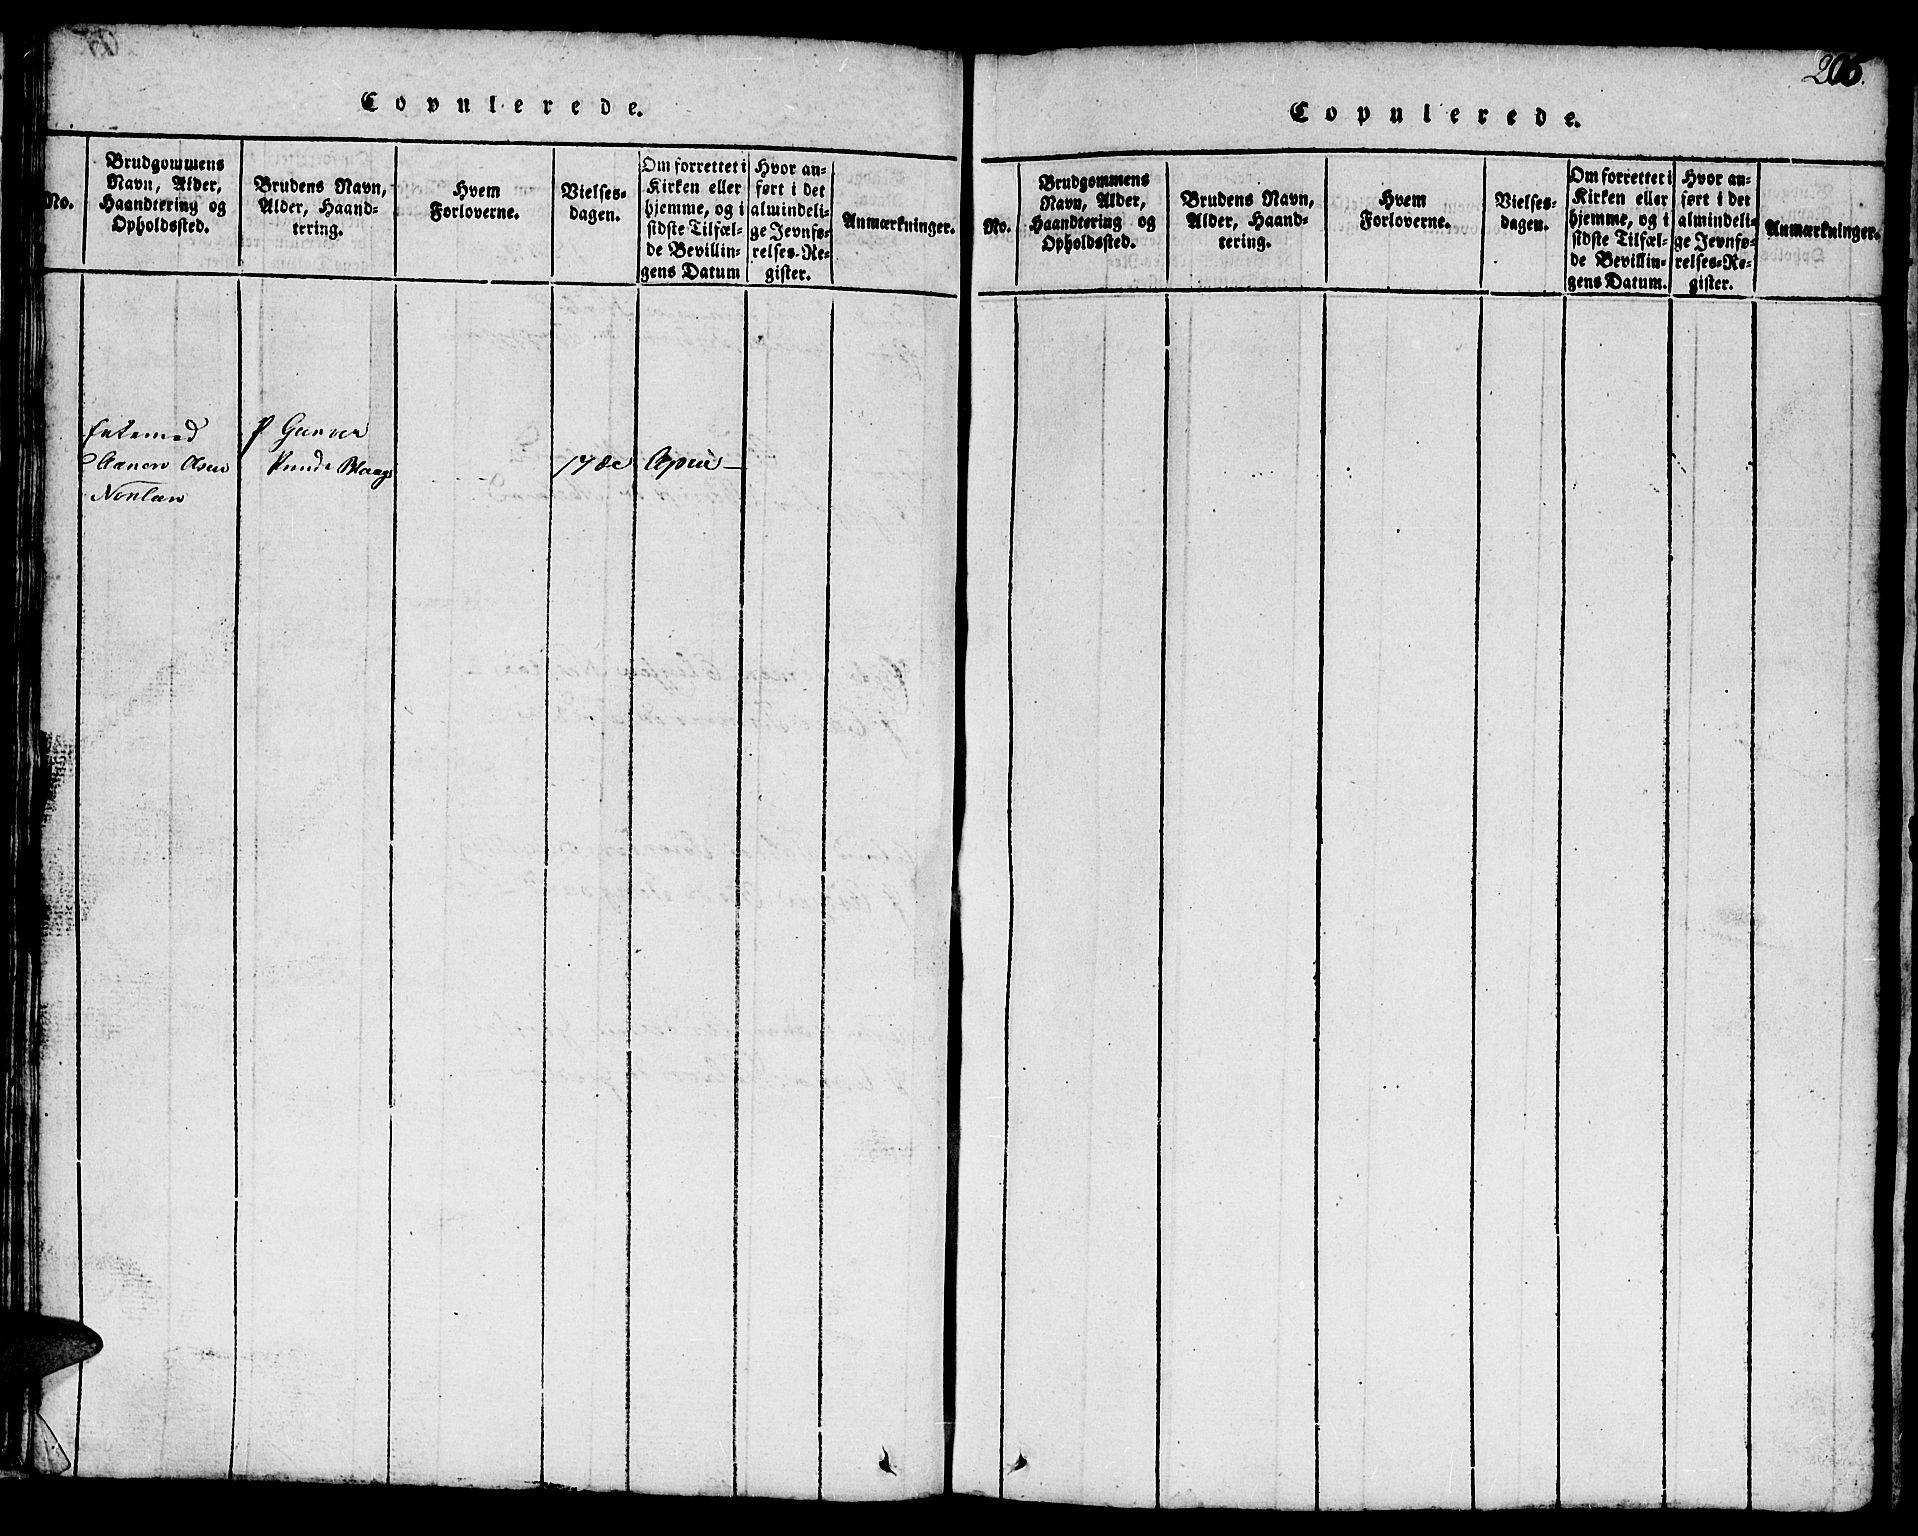 Copulerede.
No.
Brudgommens
Navn, Alder,
Haandtering og
Opholdssted.
Brudens Navn,
Alder, Haand-
tering.
Hvem
Forloverne.
Vielses-
dagen.
Om forrettet i
Kirken eller
hjemme, og i
sidste Tilfæl-
de Bevillin-
gens Datum
Hvor an-
ført i det
almindeli-
ge Jevnfø-
relses-Re-
gister.
Anmærkninger.
Aanon Olsen
P Gunver
Knuds Blaag
17de April
205.
Copulerede.
No.
Brudgommens
Navn, Alder,
Haandtering og
Opholdssted.
Brudens Navn,
Alder, Haand-
tering.
Hvem
Forloverne.
Vielses-
dagen.
Om forrettet i
Kirken eller
hjemme, og i
sidste Tilfæl-
de Bevillin-
gens Datum.
Hvor an-
ført i det
almindeli-
ge Jevnfø-
relses-Re-
gister.
Anmærkninger.